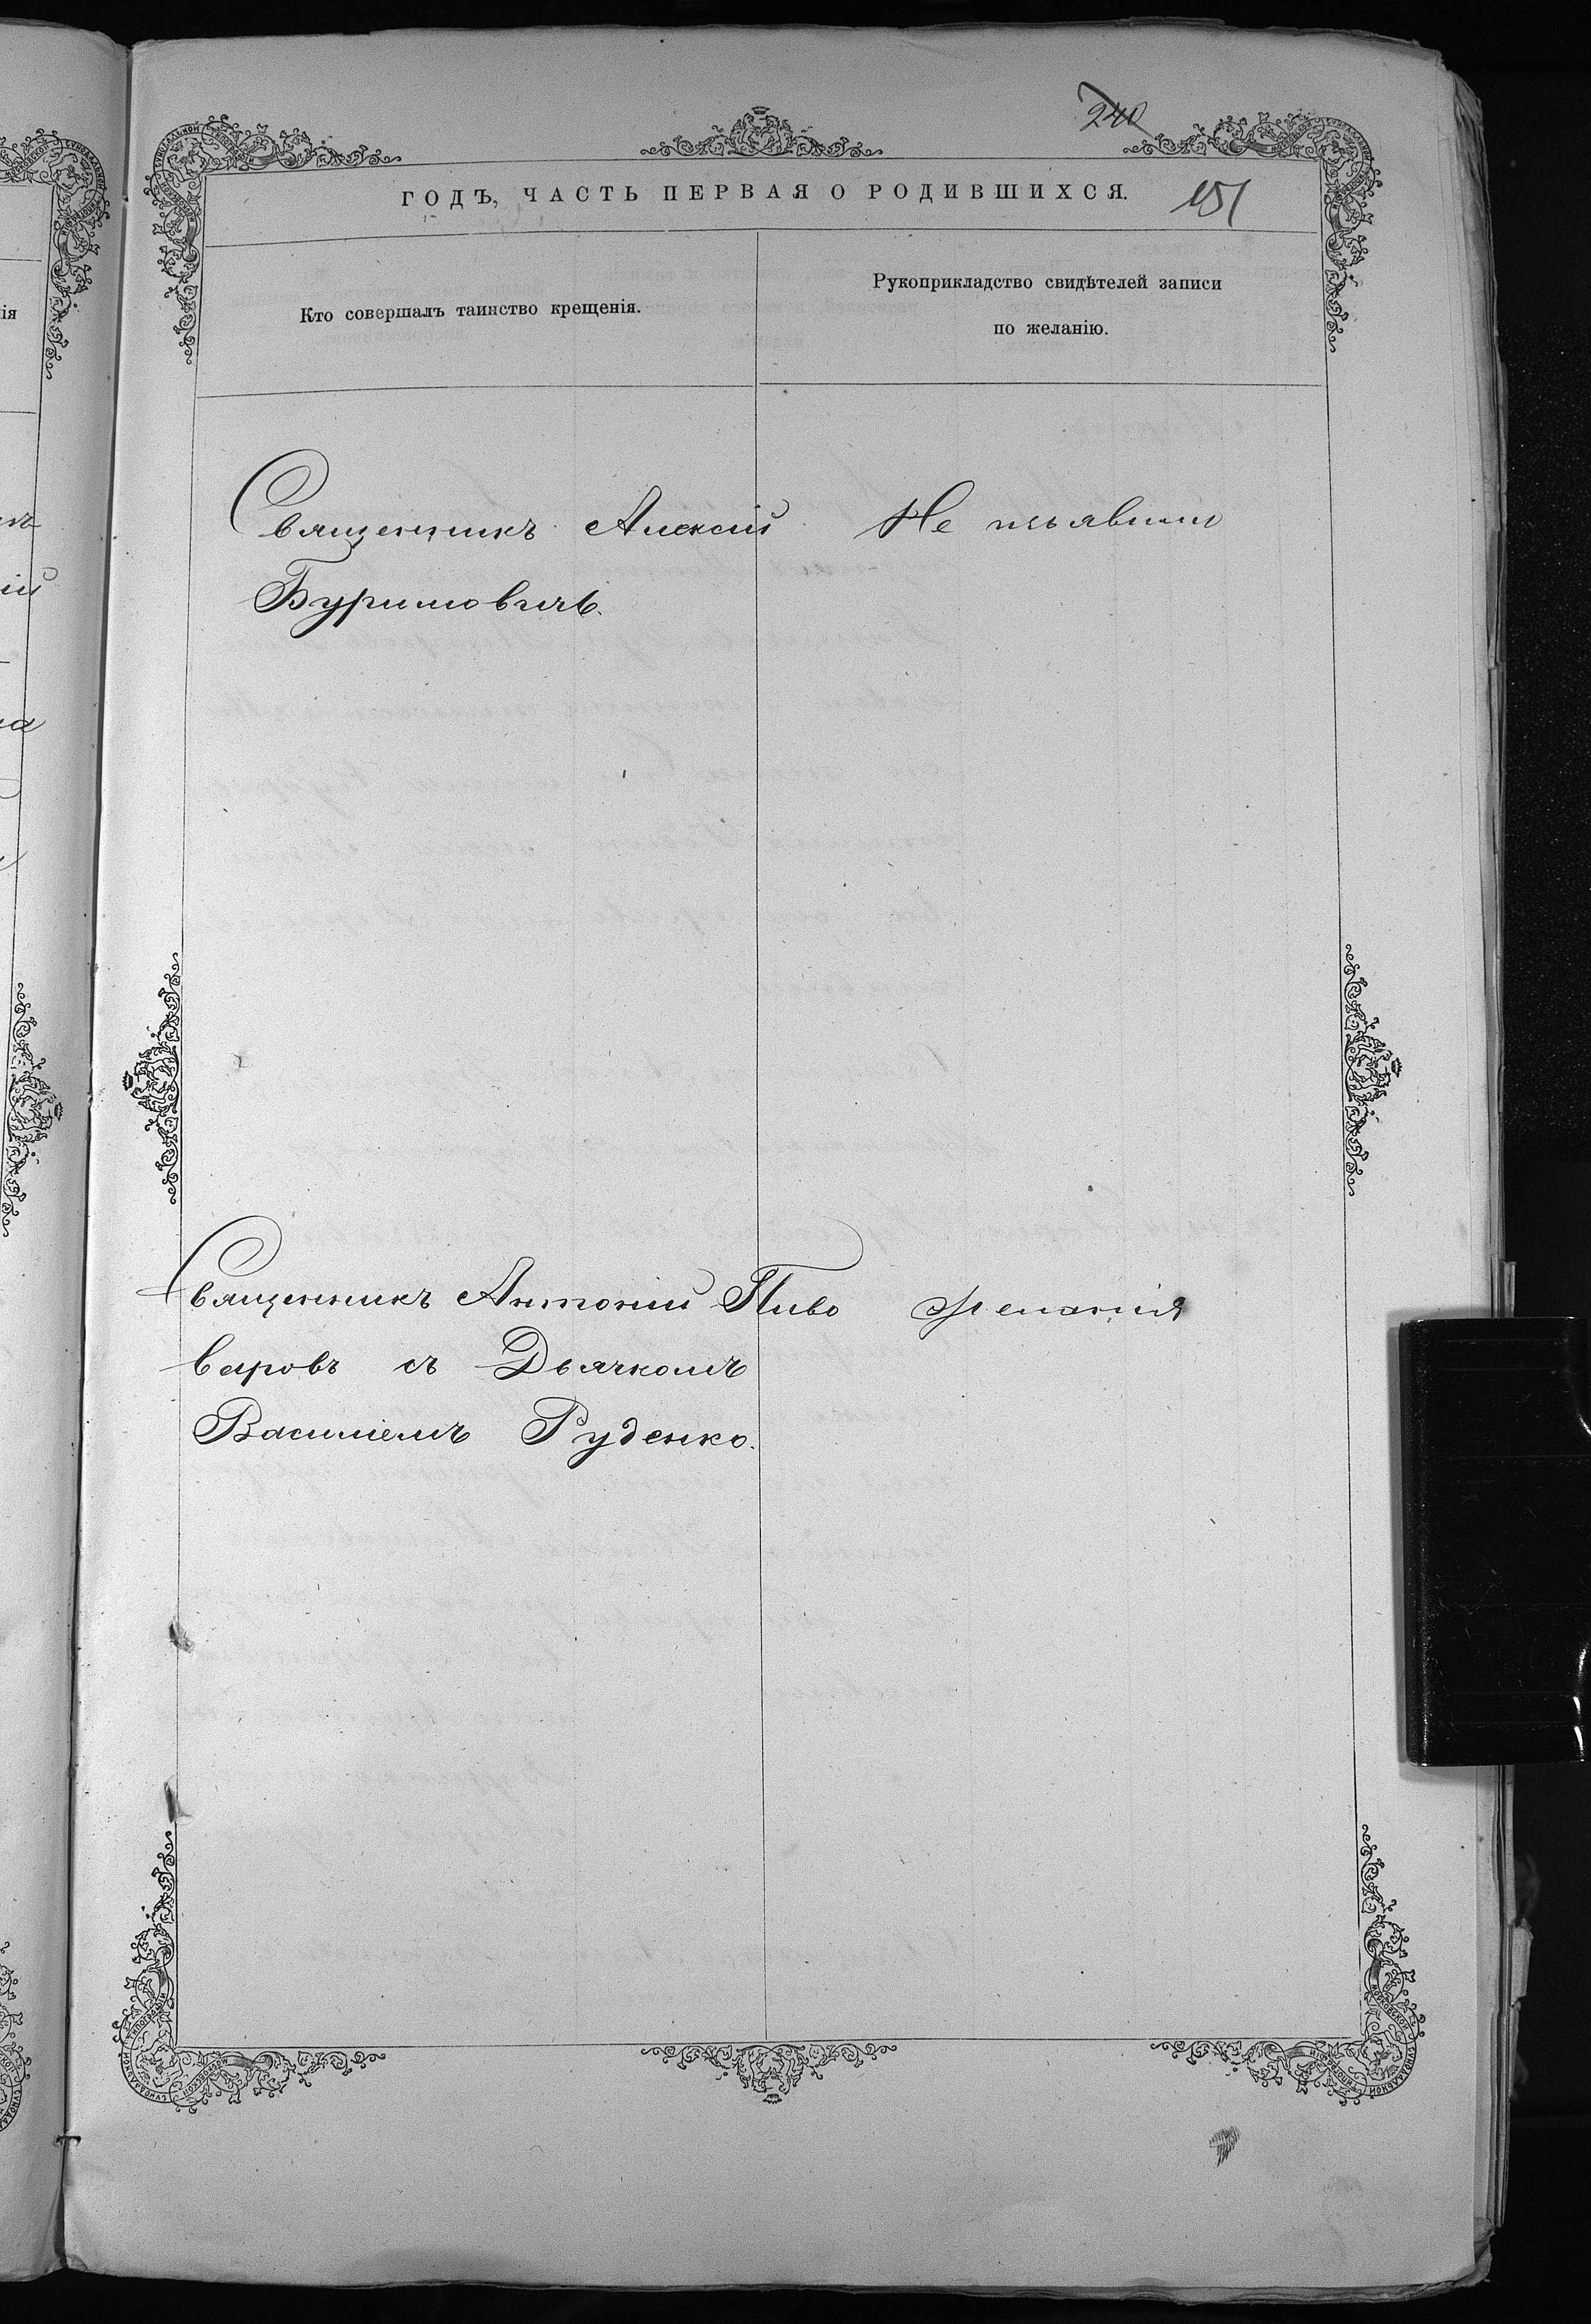 240
ГОДЪ, ЧАСТЬ ПЕРВАЯ О РОДИВШИХСЯ.
151
Кто совершалъ таинство крещенія.
Рукоприкладство свидѣтелей записи
по желанію.
Священникъ Алексій
Буримовичъ.
Не изъявили
Священникъ Антоній Пиво
варовъ съ Дьячкомъ
Василіемъ Руденко.
желанія